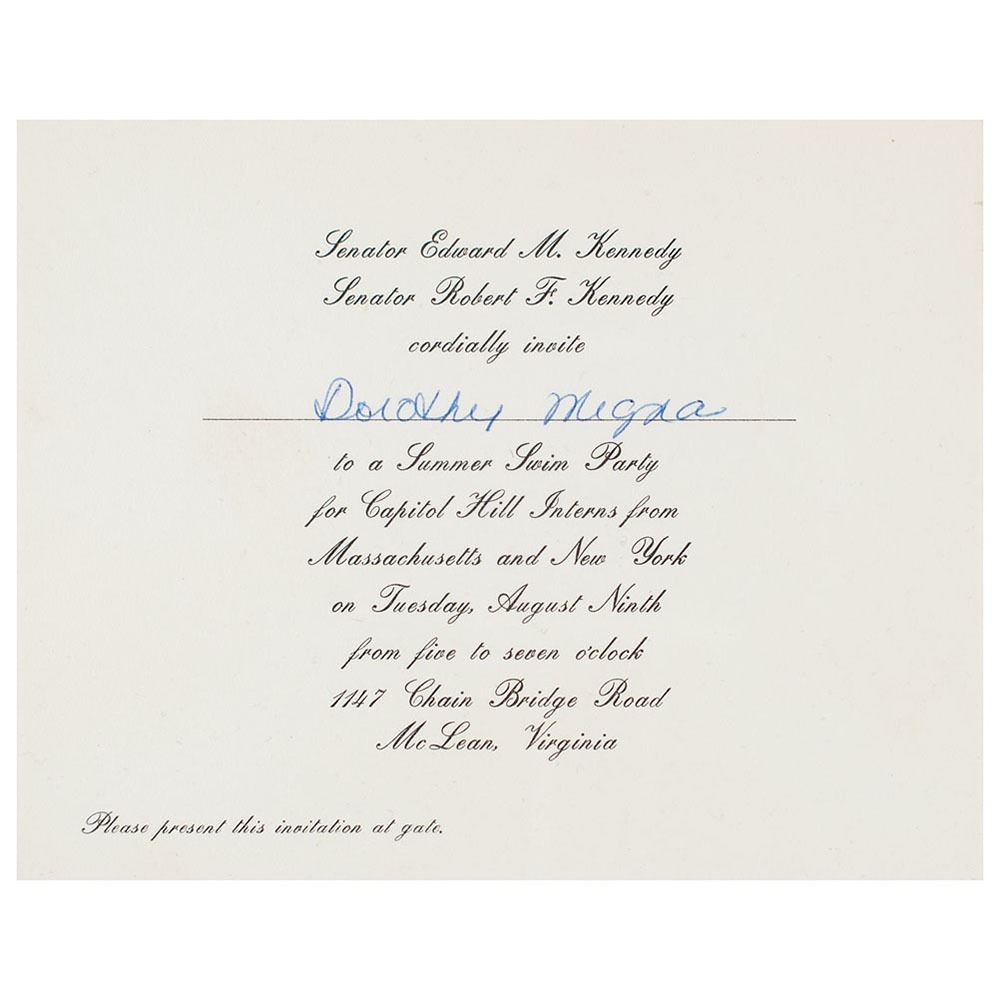 Senator Edward M. Kennedy
Senator Robert F. Kennedy
cordially invite
Dorothy Megna
to a Summer Swim Party
for Capitol Hill Interns from
Massachusetts and New York
on Tuesday, August Ninth
from five to seven o'clock
1147 Chain Bridge Road
McLean, Virginia
Please present this invitation at gate.